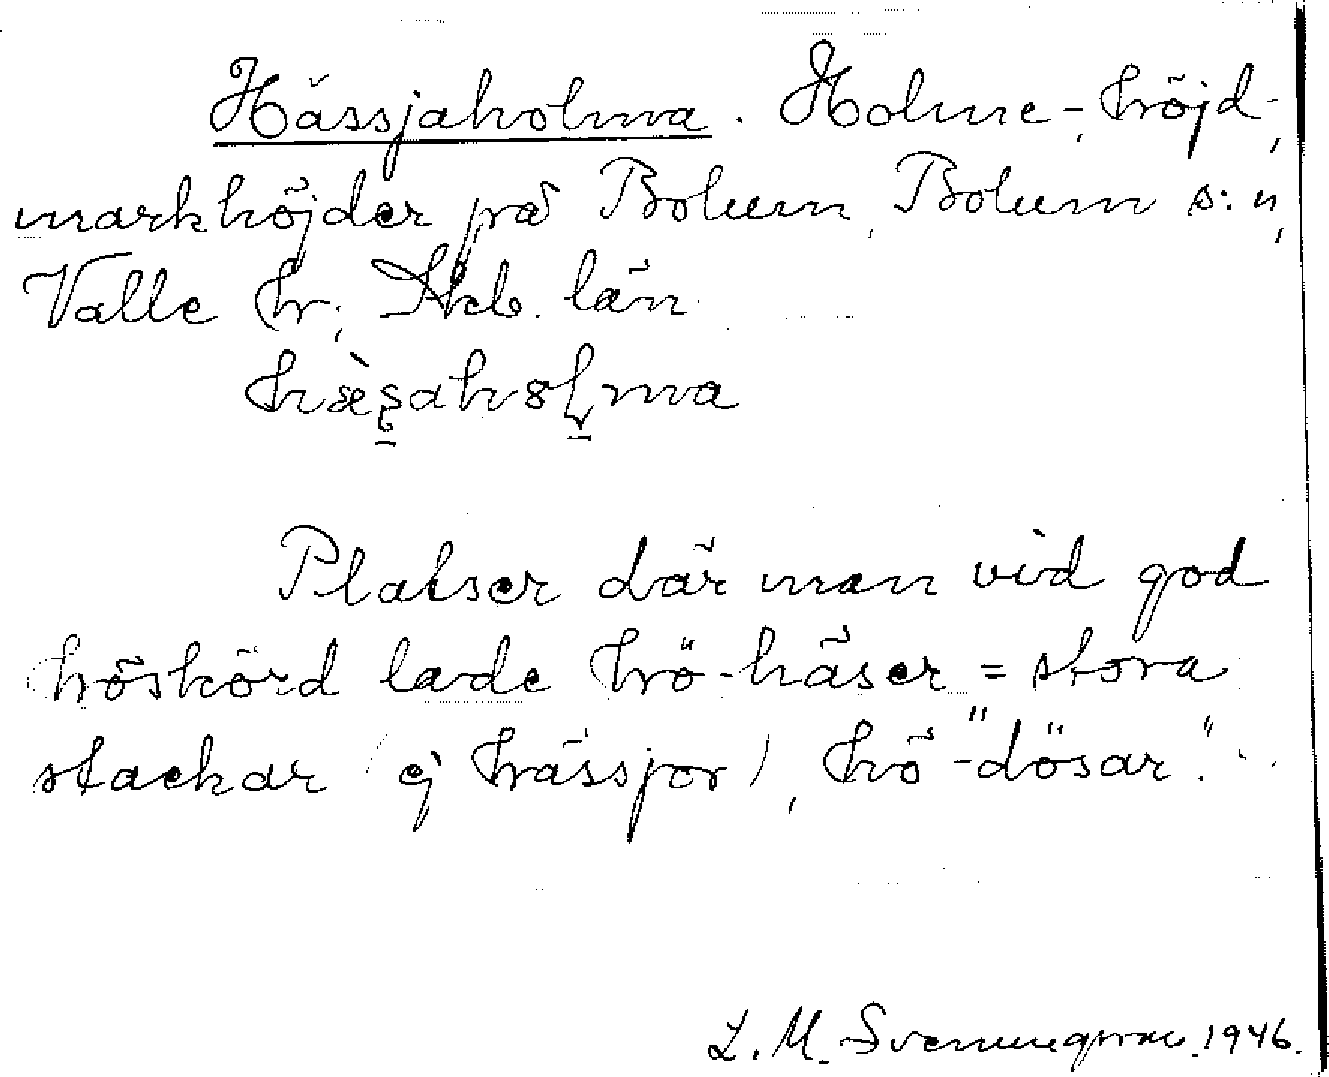 Hässjaholma. Holme-, höjd-,
markhöjder på Bolum, Bolum s:n,
Valle hr, Skb. län
Platser där man vid god
höskörd lade hö-häser = stora
stackar (ej hässjor), hö-"dösar".
L. M. Svenungsson 1946.